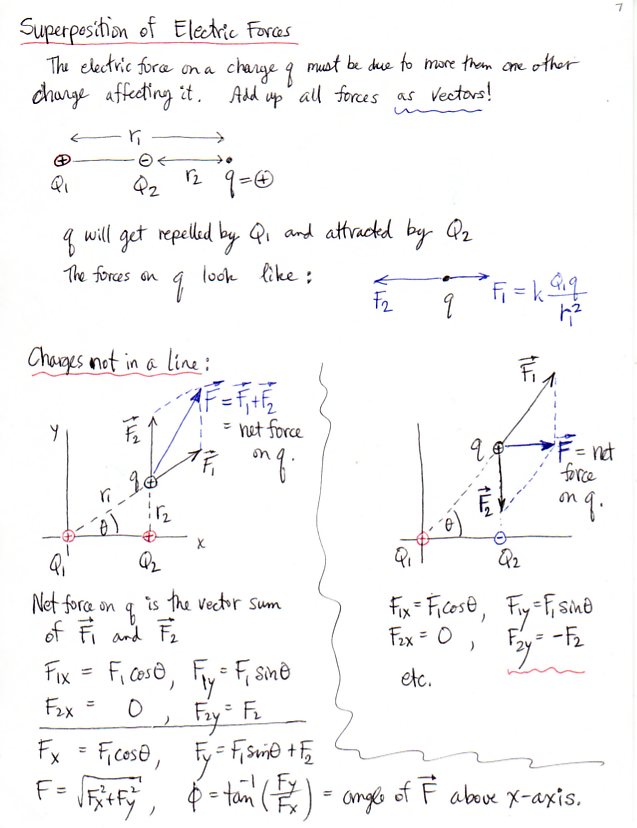 7
Superposition of Electric Forces
The electric force on a charge q must be due to more them one other
charge affecting it. Add up all forces as vectors!
r₁
⊕ ⊖ r₂ q=⊕
Q₁ Q₂
q will get repelled by Q₁ and attracted by Q₂
The forces on q look like:
F₂ q F₁ = k Q₁q/r₁²
Charges not in a line:
y
F⃗₂
F⃗ = F⃗₁+F⃗₂
= net force
on q.
q ⊕ F⃗₁
r₁ r₂
θ
⊕ ⊕ x
Q₁ Q₂
Net force on q is the vector sum
of F⃗₁ and F⃗₂
F₁ₓ = F₁cosθ, F₁y = F₁sinθ
F₂ₓ = 0, F₂y = F₂
Fₓ = F₁cosθ, Fy = F₁sinθ + F₂
F = √(Fₓ²+Fy²), ϕ = tan⁻¹(Fy/Fₓ) = angle of F⃗ above x-axis.
F⃗₁
q ⊕ F⃗ = net
force
on q.
F⃗₂
θ
⊕ ⊖
Q₁ Q₂
F₁ₓ = F₁cosθ, F₁y = F₁sinθ
F₂ₓ = 0, F₂y = -F₂
etc.